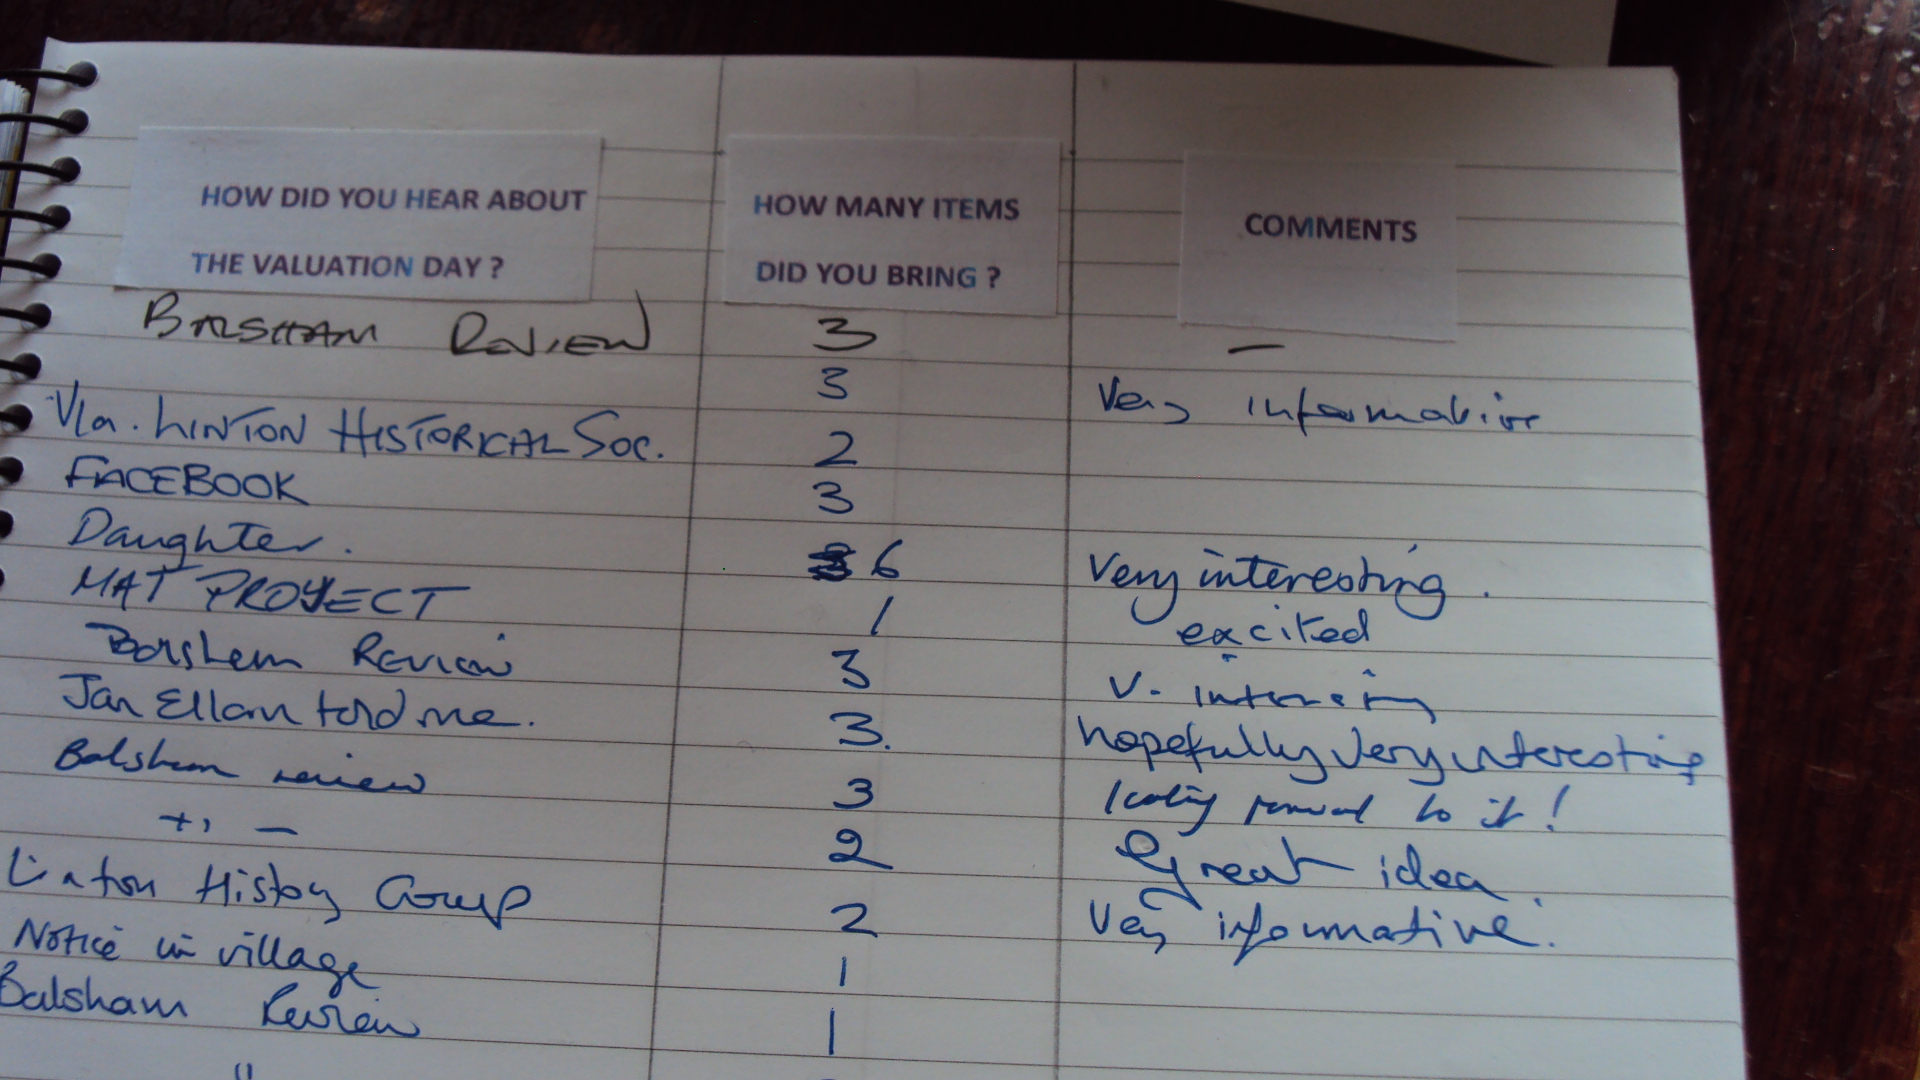 HOW DID YOU HEAR ABOUT
THE VALUATION DAY ?
HOW MANY ITEMS
DID YOU BRING ?
COMMENTS
BALSHAM REVIEW 3 –
3 Very informative
Via. LINTON HISTORICAL Soc. 2
FACEBOOK 3
Daughter. 6 Very interesting.
MAT PROYECT 1 excited
Borshem Review 3 V. interesting
Jan Ellam told me. 3. hopefully very interesting
Balsham review 3 looking forward to it!
2 Great idea
Linton History Group 2 Very informative.
Notice in village 1
Balsham Review 1
"